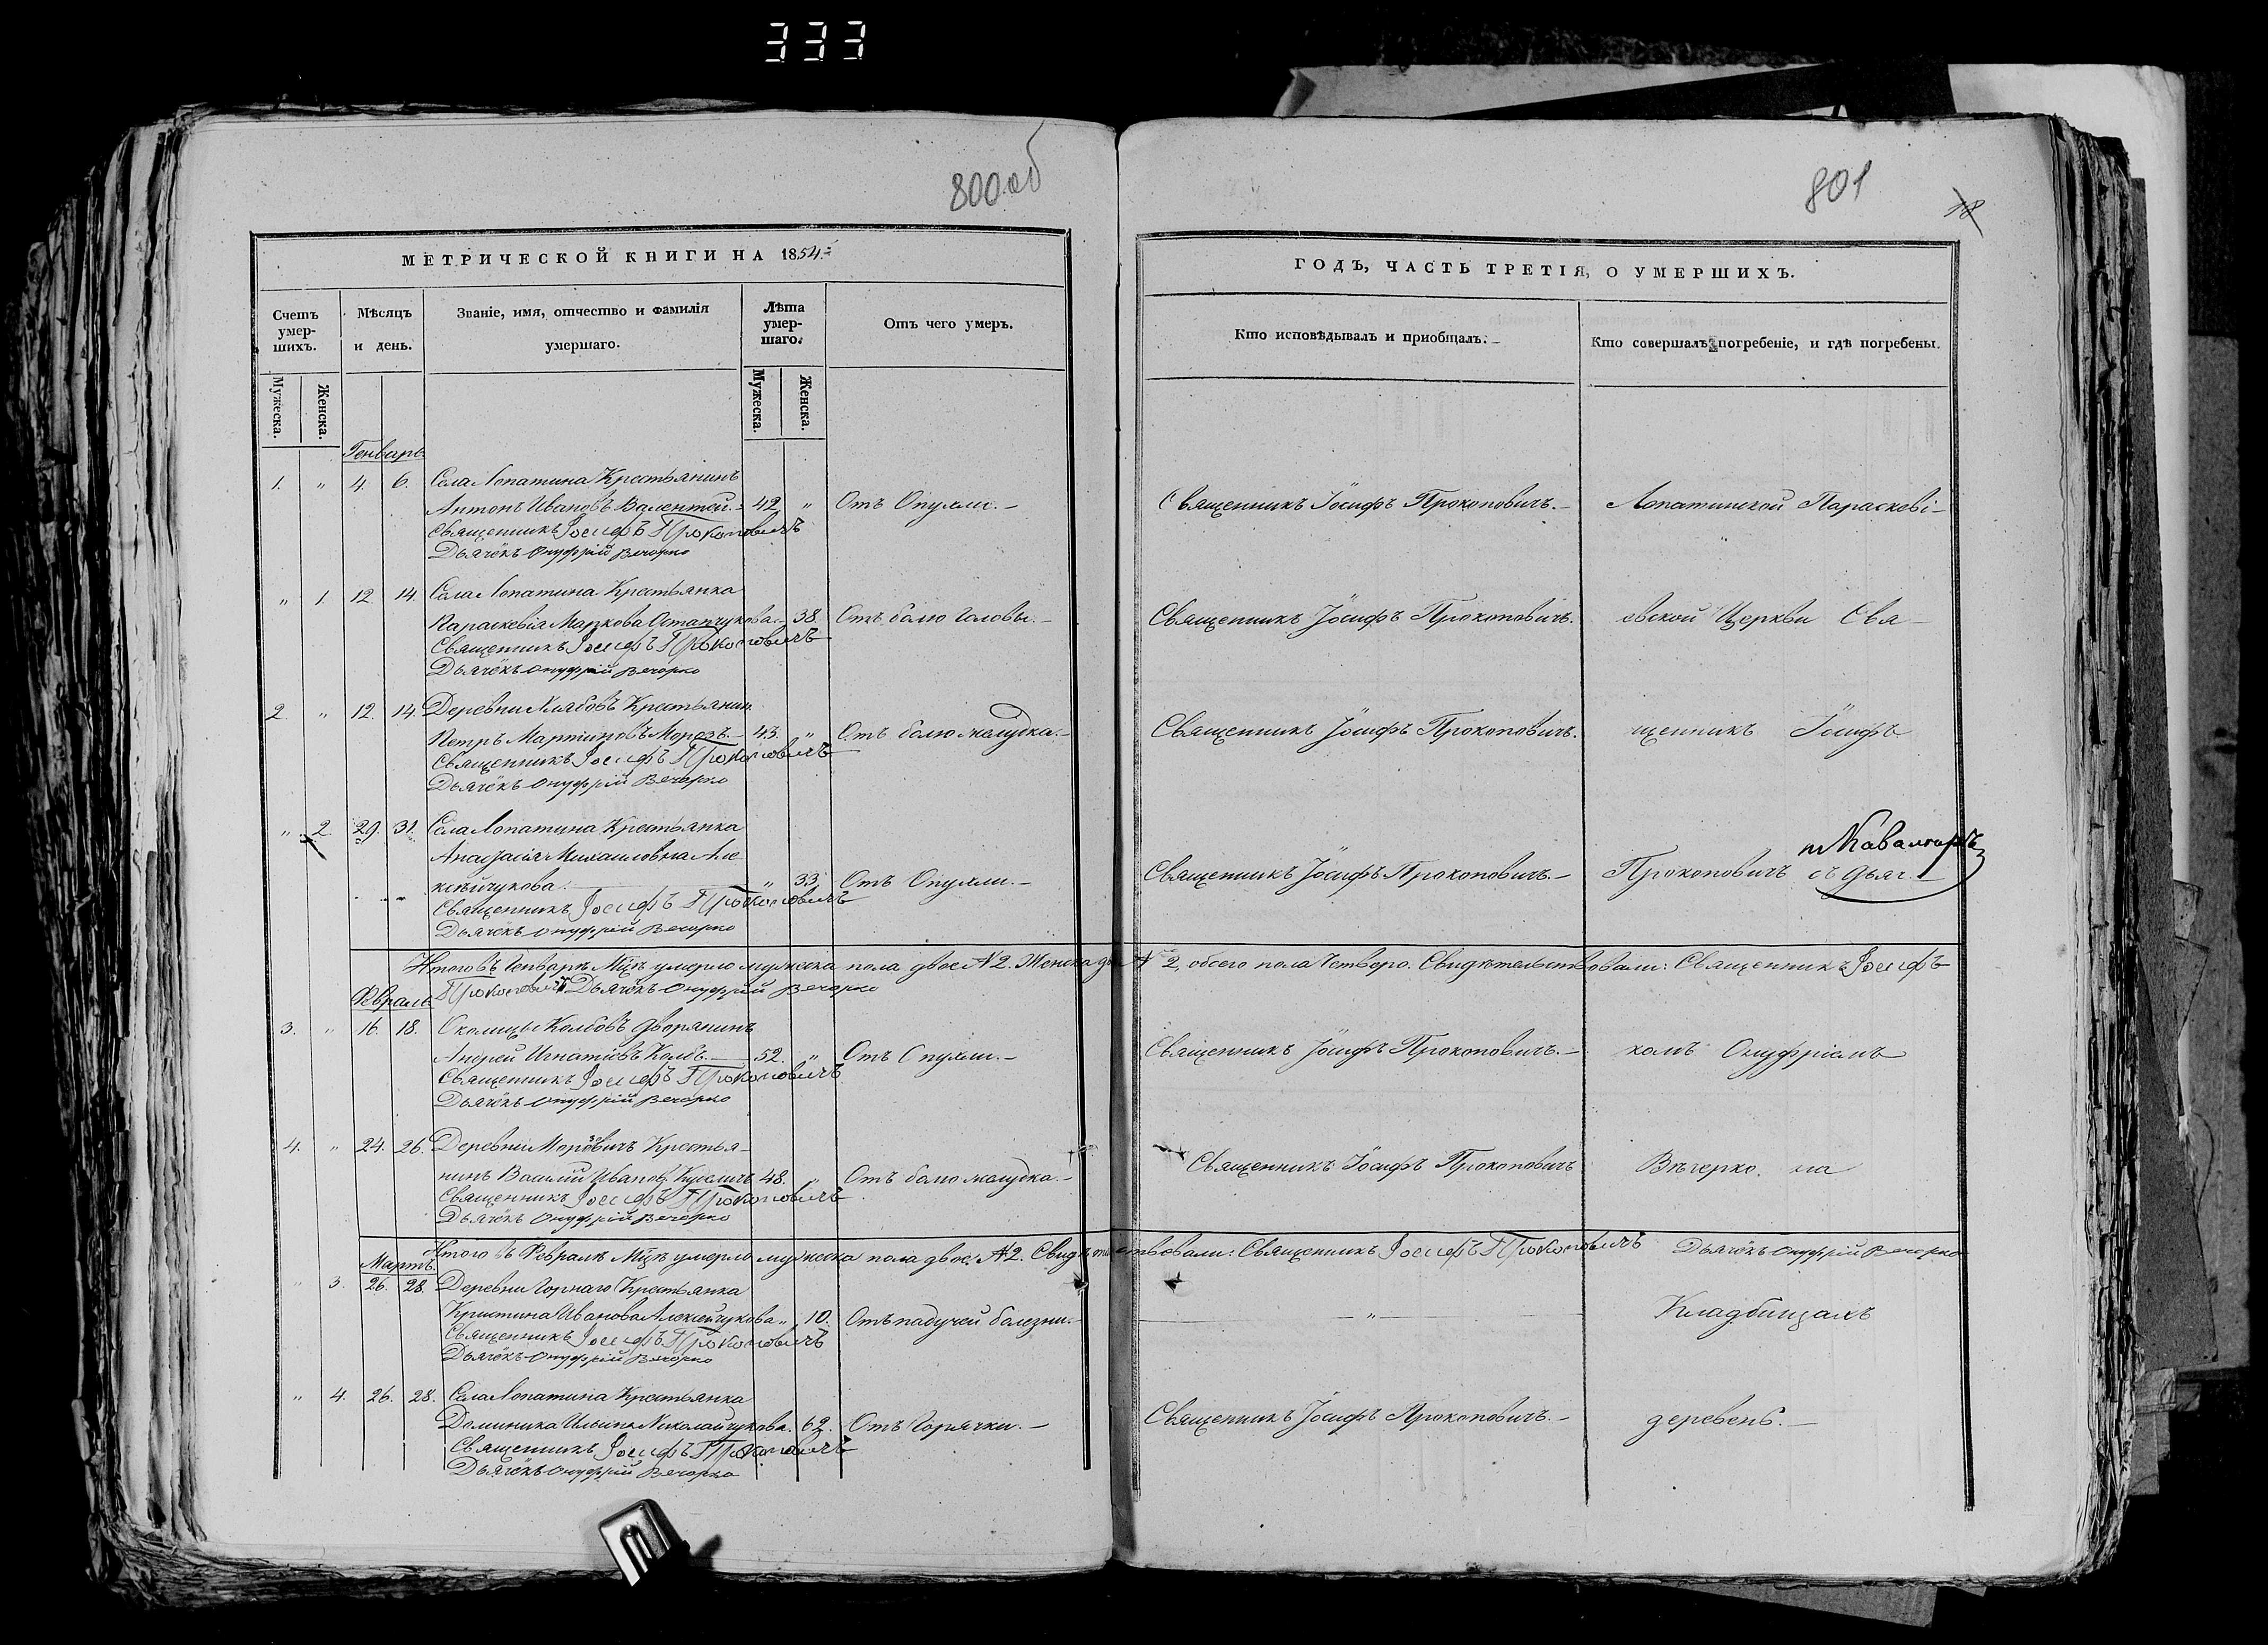 333
800 об
МЕТРИЧЕСКОЙ КНИГИ НА 1854
Счетъ умер-шихъ.
Мѣсяцъ и день.
Званіе, имя, отчество и фамилія умершаго.
Лѣта умер-шаго.
Отъ чего умеръ.
Мужеска.
Женска.
Мужеска.
Женска.
Генварь.
1. " 4. 6. Села Лопатина Крестьянинъ
Антонъ Ивановъ Валентей. 42 " Отъ Опухли.
Священникъ Іосифъ Прокоповичъ
Дьячёкъ Онуфрій Вечорко
" 1. 12. 14. Села Лопатина Крестьянка
Параскевія Маркова Остапчукова 38. Отъ болю Головы.
Священникъ Іосифъ Прокоповичъ
Дьячёкъ Онуфрій Вечорко
2. " 12. 14. Деревни Хлябовъ Крестьянин
Петръ Мартиновъ Морозъ. 43. " Отъ болю желудка.
Священникъ Іосифъ Прокоповичъ
Дьячёкъ Онуфрій Вечорко
" 2. 29. 31. Села Лопатина Крестьянка
Анастасія Михаиловна Але
ксѣйчукова. " 33 Отъ Опухли.
Священникъ Іосифъ Прокоповичъ
Дьячёкъ Онуфрій Вечорко
Итого въ Генварѣ Мцѣ умерло мужеска пола двое №2. Женска
Прокоповичъ Дьячёкъ Онуфрій Вечорко
Февраль
3. " 16. 18. Околицы Колбовъ дворянинъ
Андрей Игнатіевъ Колбъ. 52. " Отъ Опухли.
Священникъ Іосифъ Прокоповичъ
Дьячёкъ Онуфрій Вечорко
4. " 24. 26. Деревни Крестья-
нинъ Василій Ивановъ 48. " Отъ болю желудка.
Священникъ Іосифъ Прокоповичъ
Дьячёкъ Онуфрій Вечорко
Итого въ Февралѣ Мцѣ умерло мужеска пола двое. №2. Свидѣтельствовали: Священникъ Іосифъ Прокоповичъ Дьячёкъ Онуфрій Вечорко
Мартъ.
" 3. 26. 28. Деревни Горнаго Крестьянка
Кристина Иванова Алексейчукова " 10. Отъ падучей болезни.
Священникъ Іосифъ Прокоповичъ
Дьячёкъ Онуфрій Вечорко
" 4. 26. 28. Села Лопатина Крестьянка
Доминика Ильина Николайчукова. 62. Отъ Горячки.
Священникъ Іосифъ Прокоповичъ
Дьячёкъ Онуфрій Вечорко
801
18
ГОДЪ, ЧАСТЬ ТРЕТІЯ, О УМЕРШИХЪ.
Кто исповѣдывалъ и пріобщалъ.
Кто совершалъ погребеніе, и гдѣ погребены.
Священникъ Іосифъ Прокоповичъ. Лопатинской Параскеві-
Священникъ Іосифъ Прокоповичъ. евской Церкви Свя-
Священникъ Іосифъ Прокоповичъ. щенникъ Іосифъ
Священникъ Іосифъ Прокоповичъ. Прокоповичъ съ дьяч-
№ 2, обоего пола Четверо. Свидѣтельствовали: Священникъ Іосифъ
Священникъ Іосифъ Прокоповичъ. комъ Онуфріемъ
Священникъ Іосифъ Прокоповичъ Вѣчерко. на
" Кладбищахъ
Священникъ Іосифъ Прокоповичъ. деревень.